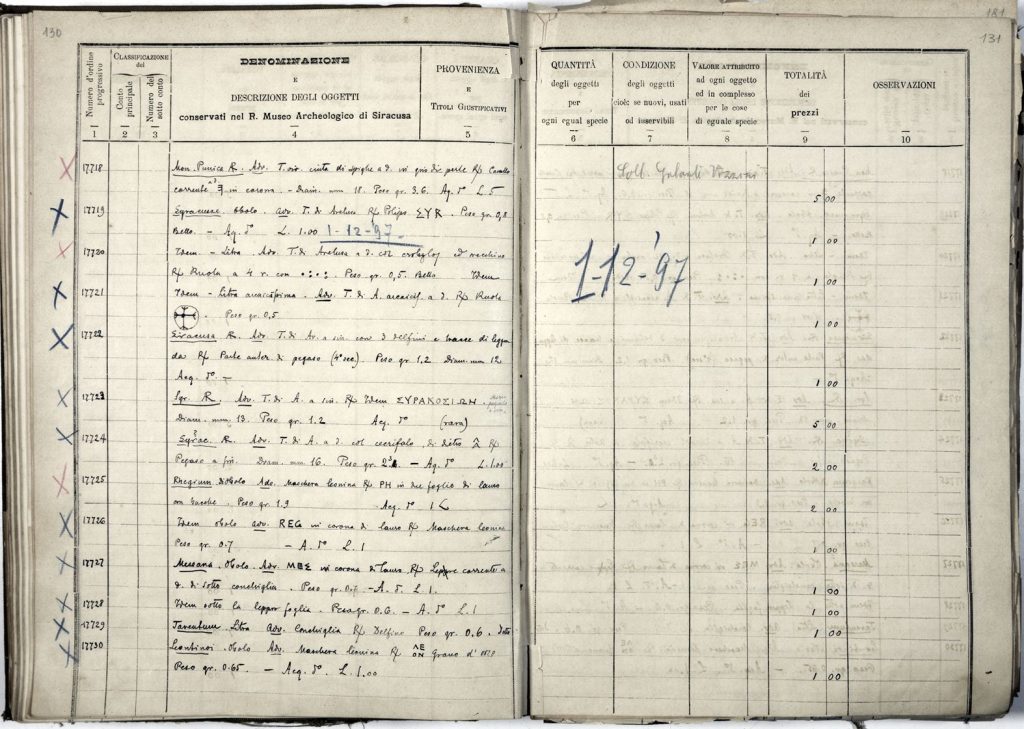 130
Numero d'ordine progressivo
CLASSIFICAZIONE dei
Conto principale
Numero del sotto conto
DENOMINAZIONE
E
DESCRIZIONE DEGLI OGGETTI
conservati nel R. Museo Archeologico di Siracusa
PROVENIENZA
E
TITOLI GIUSTIFICATIVI
1 2 3 4 5
17718 Mon. Punica R. Adv. T. vir. cinta di spighe a d. in giro di perle Rv Cavallo
corrente in corona. - Diam. mm 18. Peso gr. 3.6. Aq. L. 5
17719 Syracusae obolo. adv. T. di Aretusa Rv Polipo ΣΥΡ. Peso gr. 0,8
Bello. - Aq. L. 1.00 1-12-97
17720 Idem - Litra. Adv. T. di Aretusa a d. col ed orecchino
Rv Ruota a 4 r. con Peso gr. 0,5. Bello Idem
17721 Idem - Litra arcaicissima. Adv. T. di A. a d. Rv Ruota
Peso gr. 0,5
17722 Siracusa R. Adv. T. di Ar. a sin. con 3 delfini e tracce di leggen
da Rv Parte anter. di pegaso (4° sec). Peso gr. 1.2 Diam. mm 12
Acq.
17723 Syr. R. Adv. T. di A. a sin. Rv Idem ΣΥΡΑΚΟΣΙΩΝ.
Diam. mm. 13. Peso gr. 1.2 Acq. (rara)
17724 Syrac. R. Adv. T. di A. a d. col di dietro Rv
Pegaso a sin. Diam. mm. 16. Peso gr. - Aq. L. 1.00
17725 Rhegium Diobolo Adv. Maschera leonina Rv PH in due foglie di lauro
con bacche. Peso gr. 1.9 Acq. 1 L
17726 Idem obolo adv. REG in corona di lauro Rv Maschera leonina
Peso gr. 0.7 - A. L. 1
17727 Messana. Obolo. Adv. ΜΕΣ in corona di lauro. Rv Lepre corrente a
d. di sotto conchiglia. Peso gr. - A. L. 1.
17728 Idem sotto la lepre foglia. Peso gr. 0.6. - A. L. 1
17729 Tarentum Litra Adv. Conchiglia Rv Delfino Peso gr. 0.6.
17730 Leontinoi. Obolo Adv. Maschera leonina Rv ΛΕΟΝ Grano d'orzo
Peso gr. 0.65. - Acq. L. 1.00
181
131
QUANTITÀ
degli oggetti
per
ogni egual specie
CONDIZIONE
degli oggetti
cioè: se nuovi, usati
od inservibili
VALORE ATTRIBUITO
ad ogni oggetto
ed in complesso
per le cose
di eguale specie
TOTALITÀ
dei
prezzi
OSSERVAZIONI
6 7 8 9 10
Coll.
1-12-'97
5 00
1 00
1 00
1 00
1 00
5 00
2 00
2 00
1 00
1 00
1 00
1 00
1 00